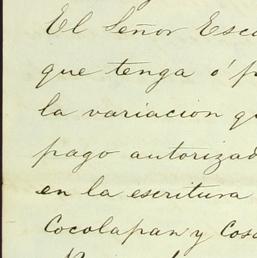 El Señor Esca
que tenga ó p
la variacion qu
pago autorizad
en la escritura
Cocolapan y Coso